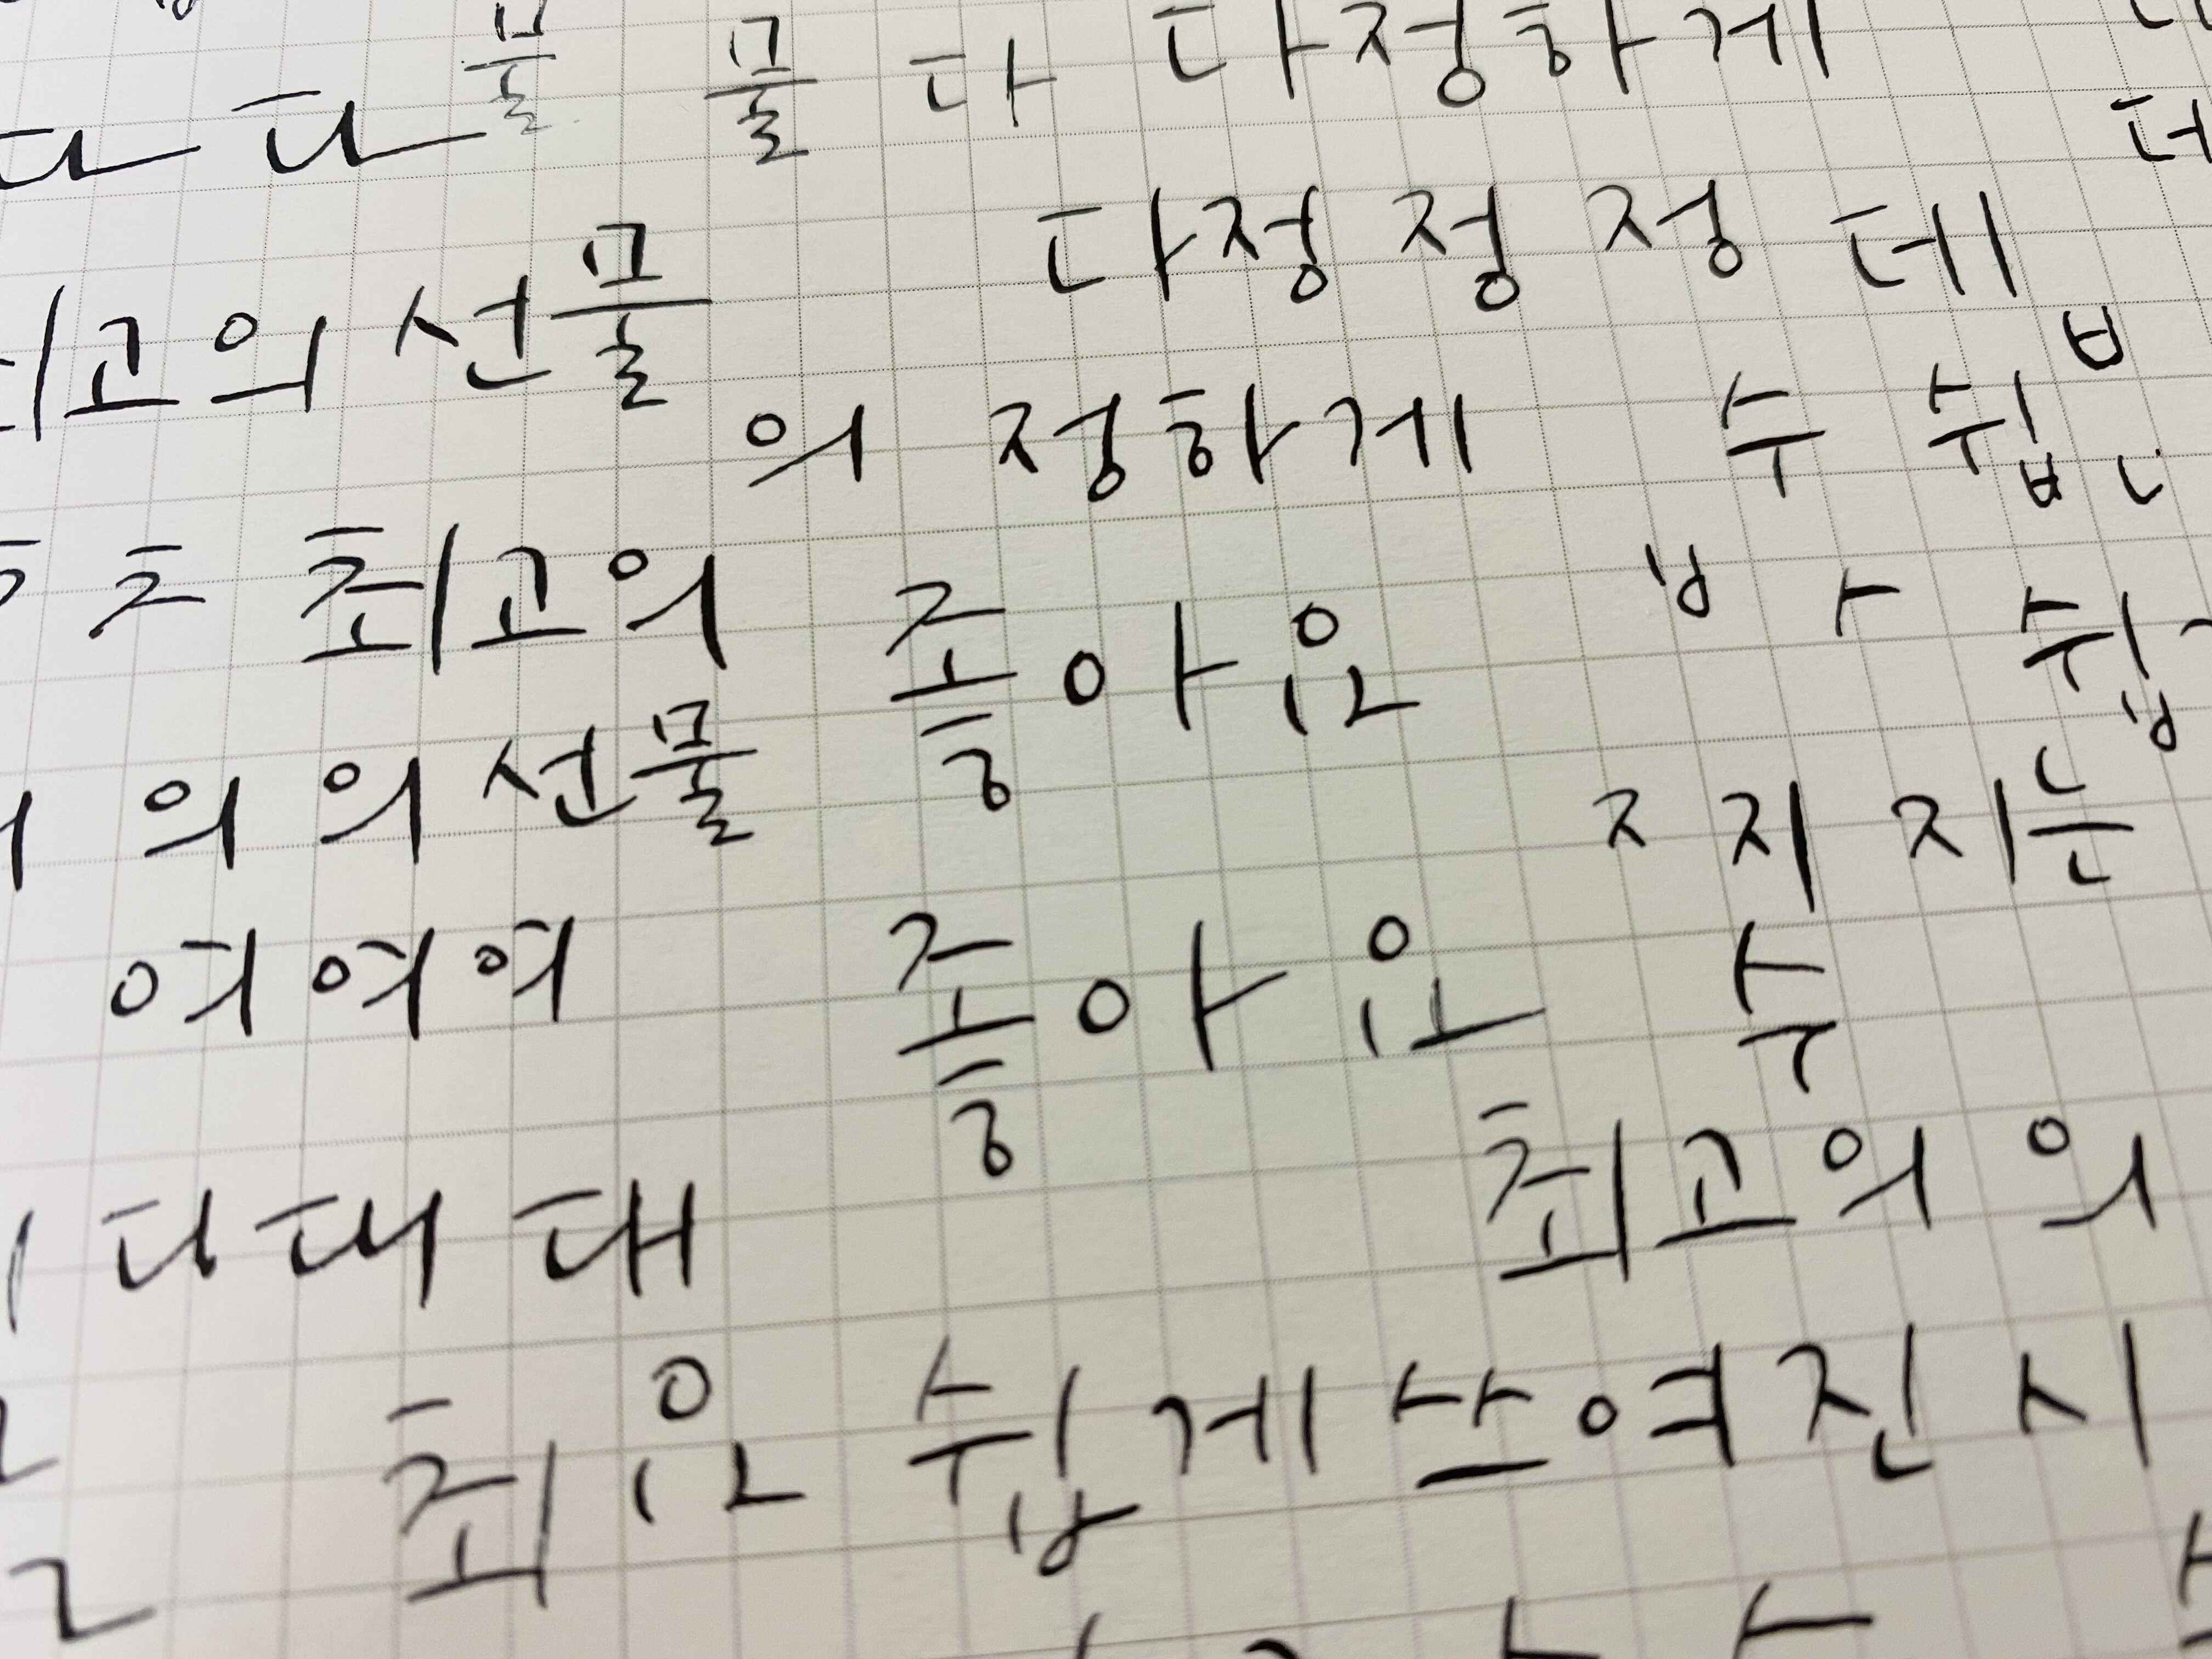 다 다 물 물 다 다정하게
다정정정데
최고의 선물
의 정하게 수 쉽
최고의 좋아요
ㅂ ㅅ 쉽
의 의 선물 ㅈ 지 지는
여 여 여 좋아요 수
다 대 대 최고의 의
최요 쉽게 쓰여진 시